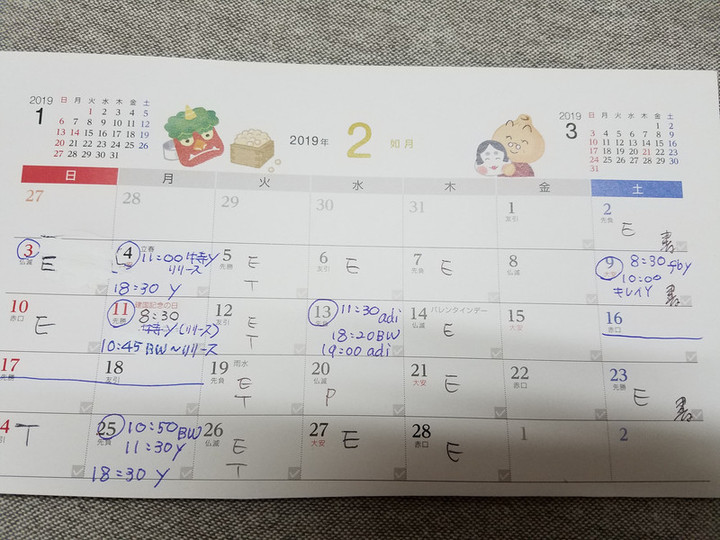 2019
1
日 月 火 水 木 金 土
1 2 3 4 5
6 7 8 9 10 11 12
13 14 15 16 17 18 19
20 21 22 23 24 25 26
27 28 29 30 31
2019年
2
如月
2019
3
日 月 火 水 木 金 土
1 2
3 4 5 6 7 8 9
10 11 12 13 14 15 16
17 18 19 20 21 22 23
24 25 26 27 28 29 30
31
日 月 火 水 木 金 土
27 28 29 30 31 1 2
友引 先負
E
3 4 立春 5 6 7 8 9
仏滅 先勝 友引 先負 仏滅
E 11:00 特Y E E E 8:30
リリース T 10:00
18:30 Y キレイY
10 11 建国記念の日 12 13 14 バレンタインデー 15 16
赤口 先勝 友引 先負 仏滅 大安 赤口
E 8:30 E 11:30 adi E
特Y(リリース) T 18:20 BW
10:45 BW~リリース 19:00 adi
17 18 19 雨水 20 21 22 23
先勝 友引 先負 仏滅 大安 赤口 先勝
E P E E
T
4 25 26 27 28 1 2
引 先負 仏滅 大安 赤口
T 10:50 BW E E E
11:30 Y T
18:30 Y